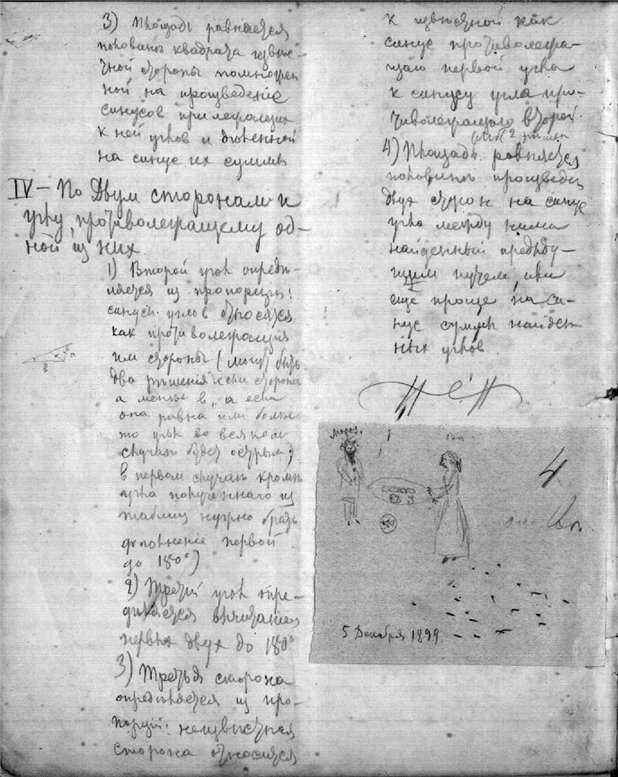 3) Площадь равняется
половинѣ квадрата извѣс-
тной стороны помножен
ной на произведеніе
синусов прилегающих
к ней углов и дѣленной
на синус их суммы
IV – По Двум сторонам и
углу, противолегащему од-
ной из них
1) Второй угол опредѣ-
ляется из пропорціи:
синусы углов относятся
как противолегащія
им стороны (могут быть
два рѣшенія если сторона
a меньше b, а если
она равна или больше
то угол во всяком
случаѣ будет острым;
в первом случаѣ кромѣ
угла полученнаго из
таблиц нужно брать
дополненіе первой
до 180°)
2) Третій угол опре-
дѣляется вычитаніем
первых двух до 180°
3) Третья сторона
опредѣляется из про-
порціи: неизвѣстная
сторона относится
к извѣстной как
синус противолега-
щаго первой угла
к синусу угла про-
тиволегащаго второй.
4) Площадь равняется
половинѣ произведен
двух сторон на синус
угла между ними
найденный предиду-
щим путем, или
еще проще, на си-
нус суммы найден
ных углов
a
b
4
5 Декабря 1899